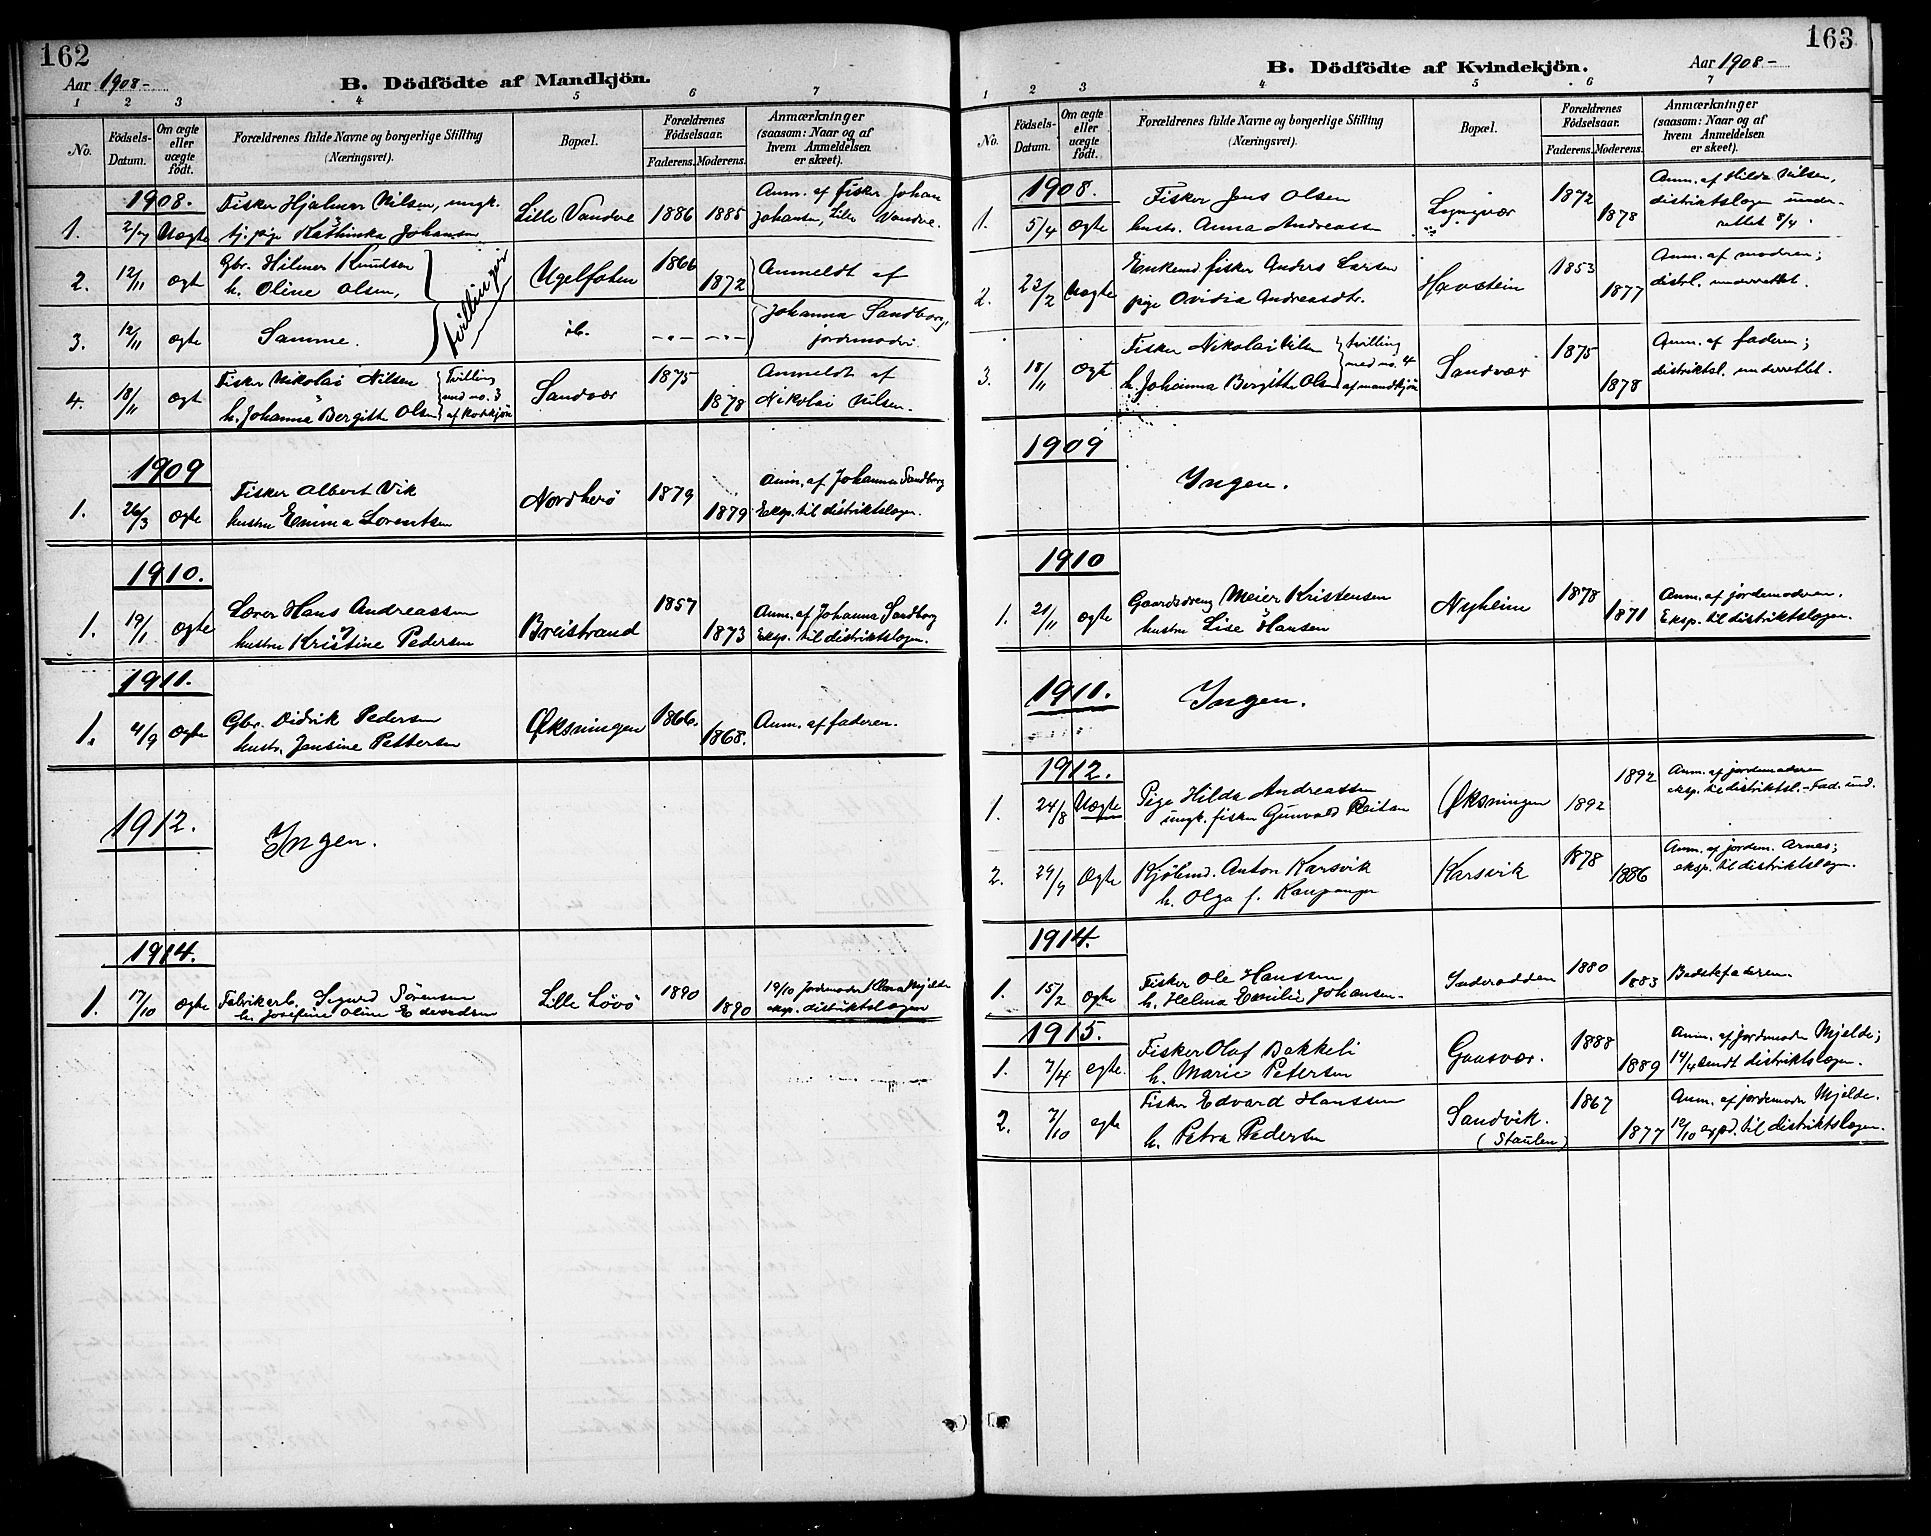 162
Aar 1908-
B. Dödfödte af Mandkjön.
1 2 3 4 5 6 7
No.
Födsels-Datum.
Om ægte eller uægte födt.
Forældrenes fulde Navne og borgerlige Stilling (Næringsvei).
Bopæl.
Forældrenes Födselsaar.
Faderens. Moderens.
Anmærkninger (saasom: Naar og af hvem Anmeldelsen er skeet).
1908.
1. Uægte Fisker Hjalmar Nilsen, ungk. Lille Vandve 1886 1885 Anm. af Fisker Johan
tj. pige Kathinka Johansen Johansen, Lille Vandve.
2. 12/11 ægt Gbr. Hilmer Knudsen Ugelfoten 1866 1872 Anmeldt af
h. Oline Olsen,
Tvillinger
3. 12/11 ægte Samme. ib. -"- -"- Johanna Sandborg,
jordemoder
4. 18/11 ægt Fisker Nikolai Nilsen Tvilling Sandvær 1875 1878 Anmeldt af
h. Johanna Bergitte Olsen med no. 3 Nikolai Nilsen.
1909
1. 26/3 ægte Fisker Albert Vik Nordherö 1879 1879 Anm. af Johanna Sandborg
hustru Emma Lorentsen Eksp. til distriktslægen.
1910.
1. 19/1 ægte Hans Andreassen Breistrand 1857 1873 Anm. af Johanna Sandborg
hustru Kristine Pedersen Eksp. til distriktslægen.
1911.
1. 4/9 ægte Gbr. Didrik Pedersen Øksningen 1866. 1868. Anm. af faderen.
hustr. Jansine Pettersen
1912.
Ingen.
1914.
1. 17/10 ægte Fabrikarb. Sigurd Sörensen Lille Lövö 1890 1890 19/10 Jordmoder Klara Mjelde
h. Josefine Oline Edvardsen eksp. distriktslægen
163
Aar 1908-
B. Dödfödte af Kvindekjön.
1 2 3 4 5 6 7
No.
Födsels-Datum.
Om ægte eller uægte födt.
Forældrenes fulde Navne og borgerlige Stilling (Næringsvei).
Bopæl.
Forældrenes Födselsaar.
Faderens. Moderens.
Anmærkninger (saasom: Naar og af hvem Anmeldelsen er skeet).
1908.
1. 5/4 ægte Fisker Jens Olsen Lyngvær 1872 1878 Anm. af Hilda Nilsen,
hustr. Anna Andreassen distriktslægen under-
rettet 8/4.
2. 22/2 Uægte Enkemd. fisker Anders Larsen Havstein 1853 1877 Anm. af moderen;
pige Ovidia Andreasdtr. distrl. underrettet.
3. 18/11 ægt Fisker Nikolai Nilsen tvilling Sandvær 1875 1878 Anm. af faderen;
h. Johanna Bergitte Olsen med no. 4 af mandkjön distriktsl. underrettet.
1909
Ingen.
1910
1. 21/11 ægte Gaardsdreng Meier Kristensen Nyheim 1878 1871 Anm. af jordemoderen.
hustru Lise Hansen Eksp. til distriktslægen.
1911.
Ingen.
1912.
1. 24/8 Uægte Pige Hilda Andreassen Øksningen 1892 1892 Anm. af jordemoderen
ungk. fisker Gunvald Reitan eksp. til distriktsl. - Fad. und.
2. 29/9 Ægte Kjöbmd. Anton Karsvik Karsvik 1878 1886 Anm. af jordem. Arnes;
h. Olga f. Kaupanger eksp. til distriktslægen.
1914.
1. 15/2 ægte Fisker Ole Hanssen 1880 1883 Bedstefaderen.
h. Helma Emilie Johansen.
1915.
1. 7/4 egte. Fisker Olaf Bakkeli Gaasvær. 1888 1889 Anm. af jordmoder Mjelde;
h. Marie Petersen 14/4 sendt distriktslægen.
2. 7/10 egte Fisker Edvard Hanssen Sandvik. 1867 1877 Anm. af jordemoder Mjelde.
h. Petra Pedersen (Staulen) 12/10 expd. til distriktslægen.